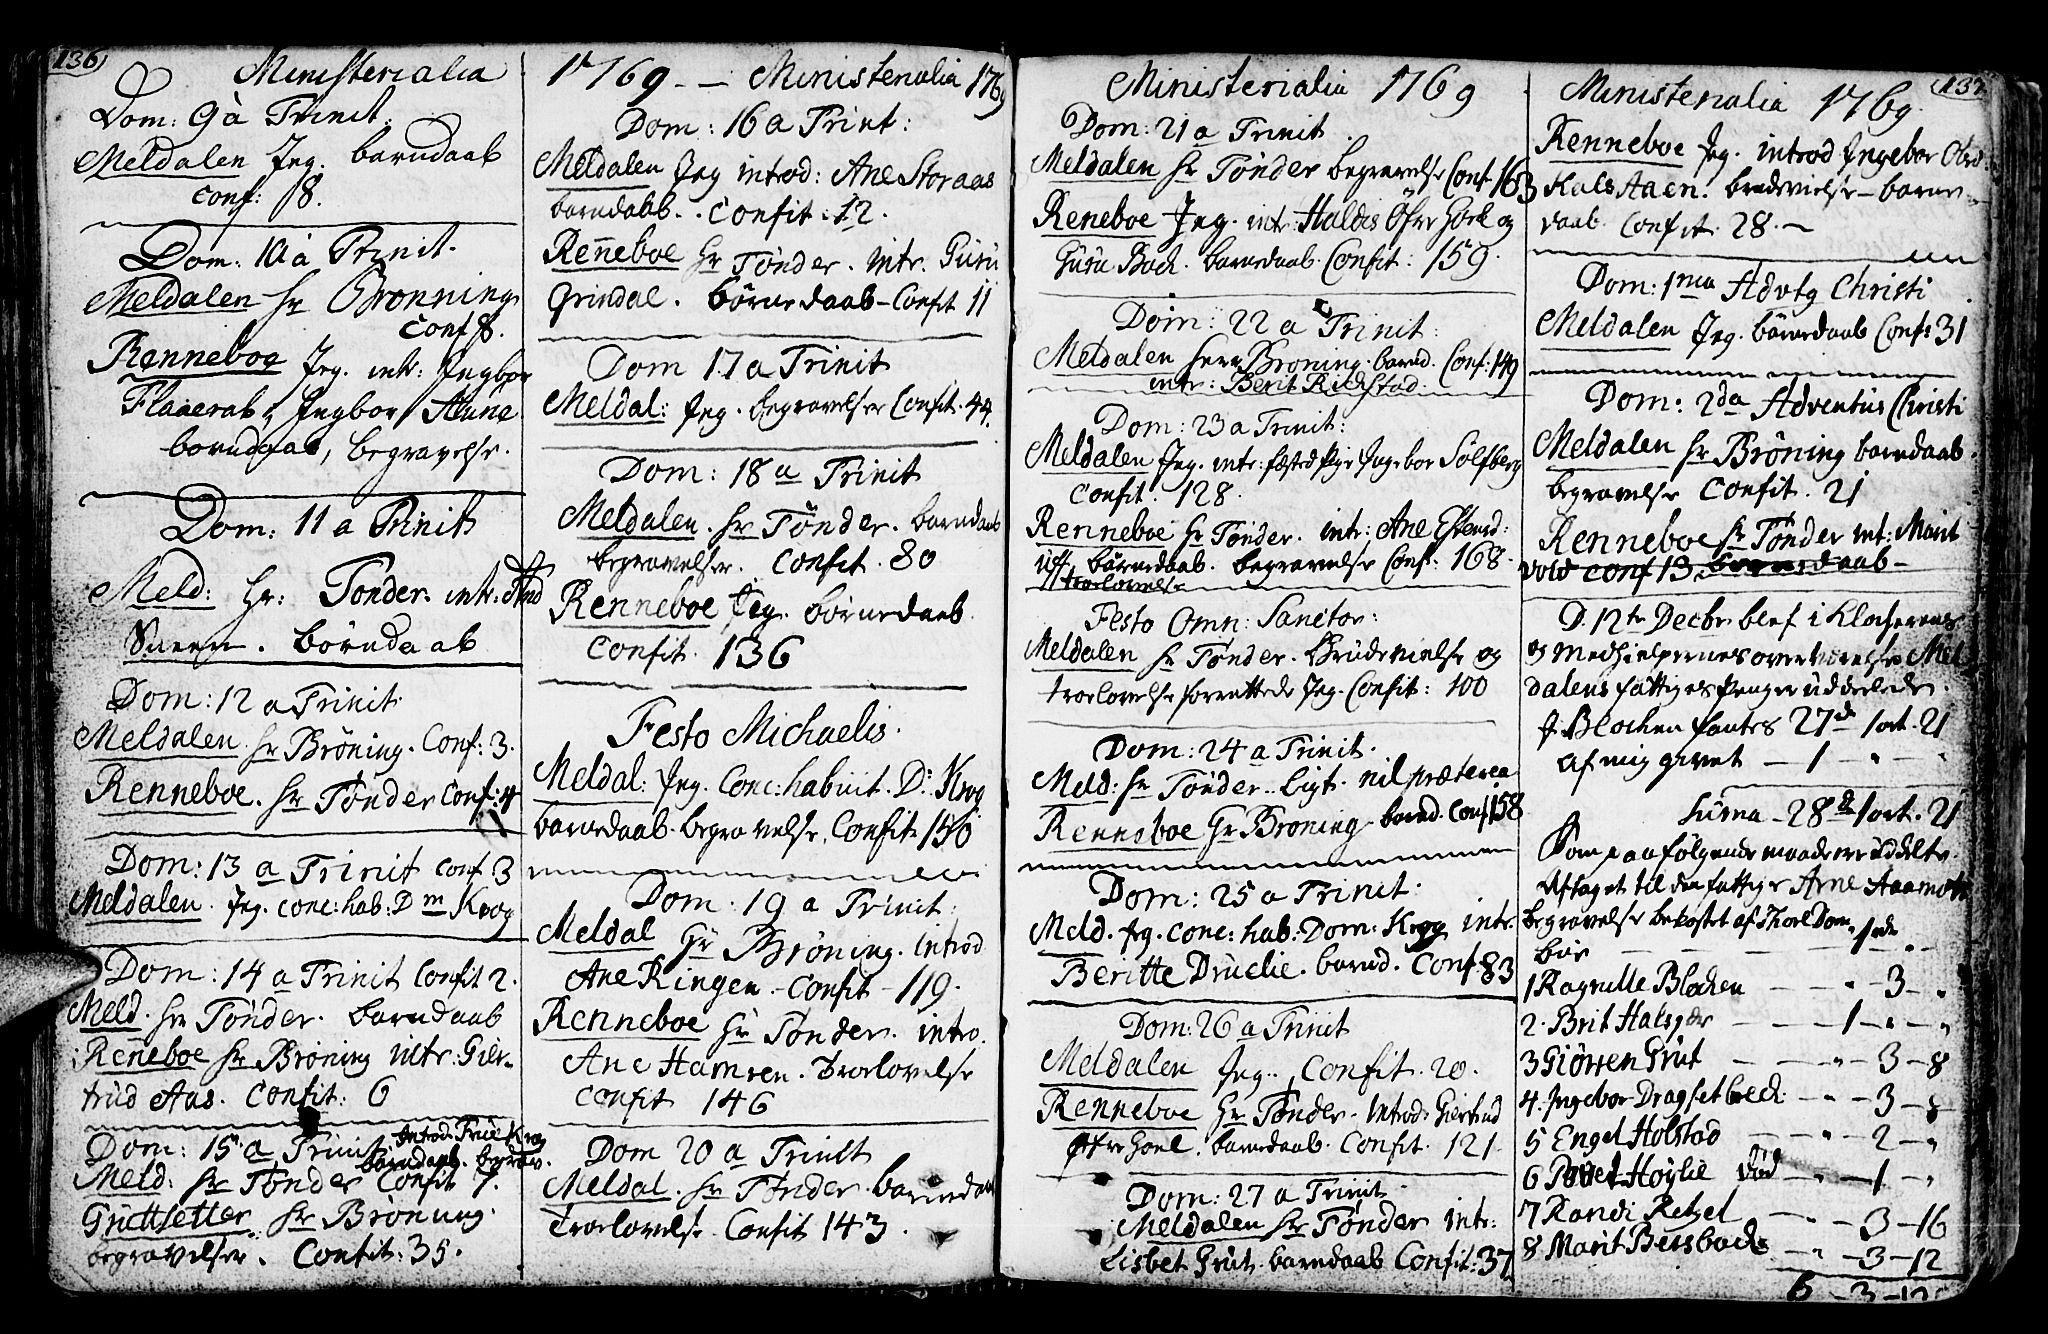 136
Ministerialia
Dom: 9 à Trinit:
Meldalen Jeg. barndaab
conf: 8.
Dom. 10 à Trinit.
Meldalen hr Brønning
conf 8.
Renneboe Jeg. intr: Ingbor
Ingbor Aune
barndaab, begravelse.
Dom: 11 a Trinit
Meld: Hr: Tonder. intr:
børndaab
Dom: 12 a Trinit
Meldalen. hr Brøning. Conf: 3.
Renneboe. hr Tønder Conf: 4
Dom: 13 a Trinit conf 3
Meldalen. Jeg. conc: hab: Dm Krog
Dom: 14 a Trinit Confit 2.
Meld. hr Tønder. barndaab
Renneboe hr Brøning intr: Gier-
trud Aas. Confit: 6
Dom: 15 a Trinit introd. Frue Krog
barndaab. begrav.
Meld: hr Tønder Confit 7.
Grutsetter hr Brøning.
begravelser. Confit: 35.
1769 -- Ministerialia 1769
Dom: 16 a Trint:
Meldalen Jeg introd: Ane Storaas
barndabb. Confit: 12.
Renneboe Hr Tønder. intr. Guru
Grindal. børnedaab - Confit 11
Dom 17 a Trinit
Meldal: Jeg. begravelser Confit. 44.
Dom: 18 a Trinit
Meldalen. hr Tönder. barndaab
begravelser. Confit. 80
Renneboe Jeg. börnedaab
Confit. 136
Festo Michaelis.
Meldal: Jeg. Conc: habuit. D: Krog
barnedaab. begravelse. Confit 150
Dom. 19 a Trinit:
Meldal Hr Brøning. introd
Ane Ringen - Confit - 119.
Renneboe hr Tonder. intro.
Ane Hamren. Troelovelse
confit 146
Dom 20 a Trinit
Meldal. hr Tønder. barnedaab
Troelovelse. Confit 143.
Ministerialia 1769
Dom: 21 a Trinit.
Meldalen hr Tønder begravelse Conf 163
Reneboe Jeg. intr: Haldis Öfr Hoel og
Guru Back. barnedaab. Confit: 159.
Dom: 22 a Trinit:
Meldalen Herr Broning. barnd. Conf: 149
intr: Berit Rickstad.
Dom: 23 a Trinit:
Meldalen Jeg. intr: fæsted Pige Ingebor Solsberg
Confit. 128.
Renneboe hr Tønder. intr: Ane Estensd:
Uff. börnedaab. begravelse Conf: 168.
troelovelse
Festo Omn: Sanctor:
Meldalen hr Tønder. Brudevielse og
troelovelse forrettede Jeg. Confit: 100
Dom: 24 a Trinit.
Meld: hr Tønder. Ligt. nil præterea
Renneboe Hr Broning. barnd. Conf 158
Dom: 25 a Trinit.
Meld. Jeg. conc: hab: Dom: Krog intr.
Beritte Druelie. barnd. Conf. 83
Dom: 26 a Trinit
Meldalen Jeg. Confit. 20.
Renneboe Hr Tønder. Introd: Giertrud
Öfr Hoel. barnedaab. Confit. 121.
Dom: 27 a Trinit.
Meldalen hr Tønder intr:
Lisbet Grut. barndaab Confit: 37.
137
Ministerialia 1769.
Renneboe Jeg. introd Ingebor Olsd:
Hals Aaen. brudevielse - barne-
daab. Confit. 28. -
Dom: 1ma Advtg Christi
Meldalen Jeg. börnedaab Conf: 31
Dom: 2da Adventus Christi
Meldalen hr Brøning barndaab.
begravelse Confit. 21
Renneboe hr Tønder int: Marit
Vold conf 13. børnedaab -
D. 12te Decbr. blef i Klokerens
og Medhielpernes overværelse Mel
dalens fattiges Penger uddeelede.
J Blocken fantes 27 d 1 ort. 21
af mig givet - 1 " - "
Suma - 28 d 1 ort. 21
Som paa følgende maade er uddelte.
Aftaget til den fattige Arne Aamots
begravelse bekostet af
1 Ragnille Blocken - - " 3 - "
2. Brit Halsgier - - 1 - " - "
3 Giørren Grut - - " - 3 - 8
4. Ingebor Dragsetbeck - " - 3 - 8
5 Engel Holstad - - " - 2 - "
6 Povel Hoylie död - " - 1 - "
7 Randi Retzel - " - 3 - 16
8 Marit Bersback - " - 3 - 12
6 - 3 - 12